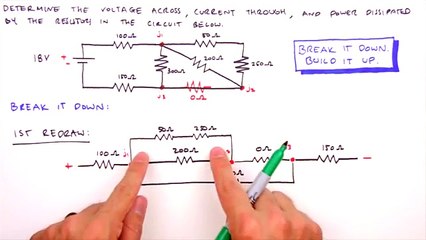 DETERMINE THE VOLTAGE ACROSS, CURRENT THROUGH, AND POWER DISSIPATED
BY THE RESISTORS IN THE CIRCUIT BELOW.
100Ω J1 50Ω
18V + - 300Ω 200Ω 250Ω
150Ω J3 0Ω J2
BREAK IT DOWN.
BUILD IT UP.
BREAK IT DOWN:
1ST REDRAW:
50Ω 250Ω
+ 100Ω J1 200Ω 0Ω J3 150Ω -